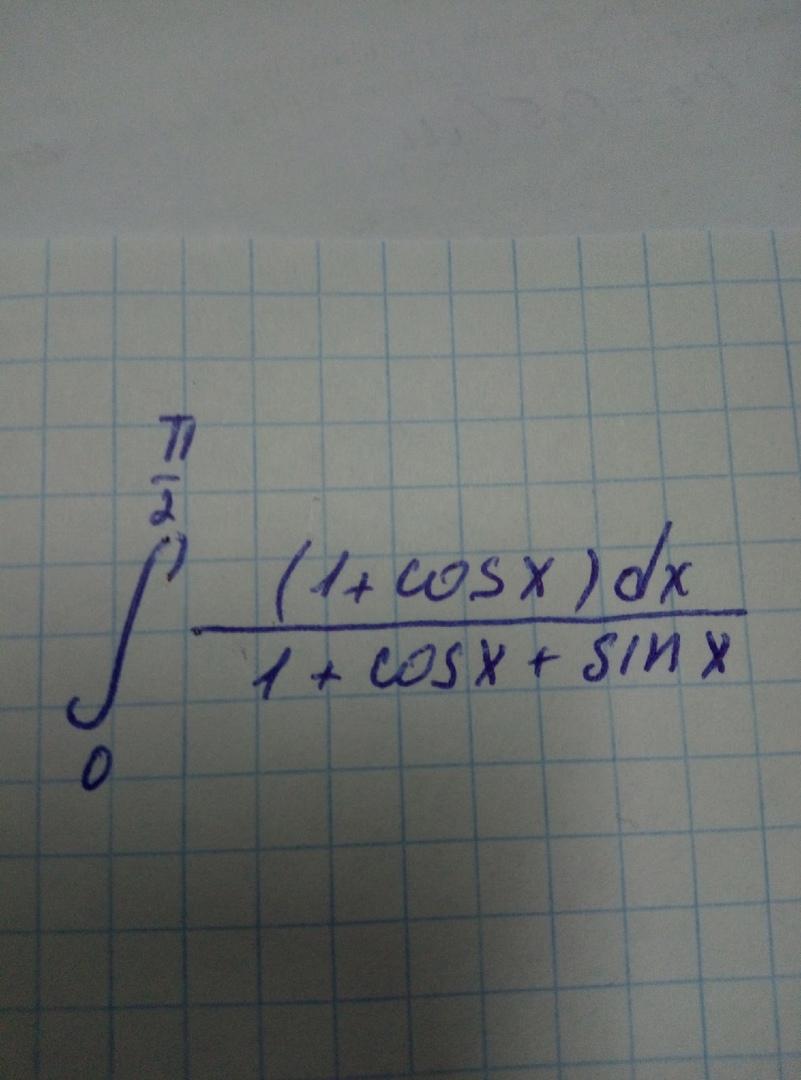 π
2
∫ (1+cosx)dx
1+cosx+sinx
0